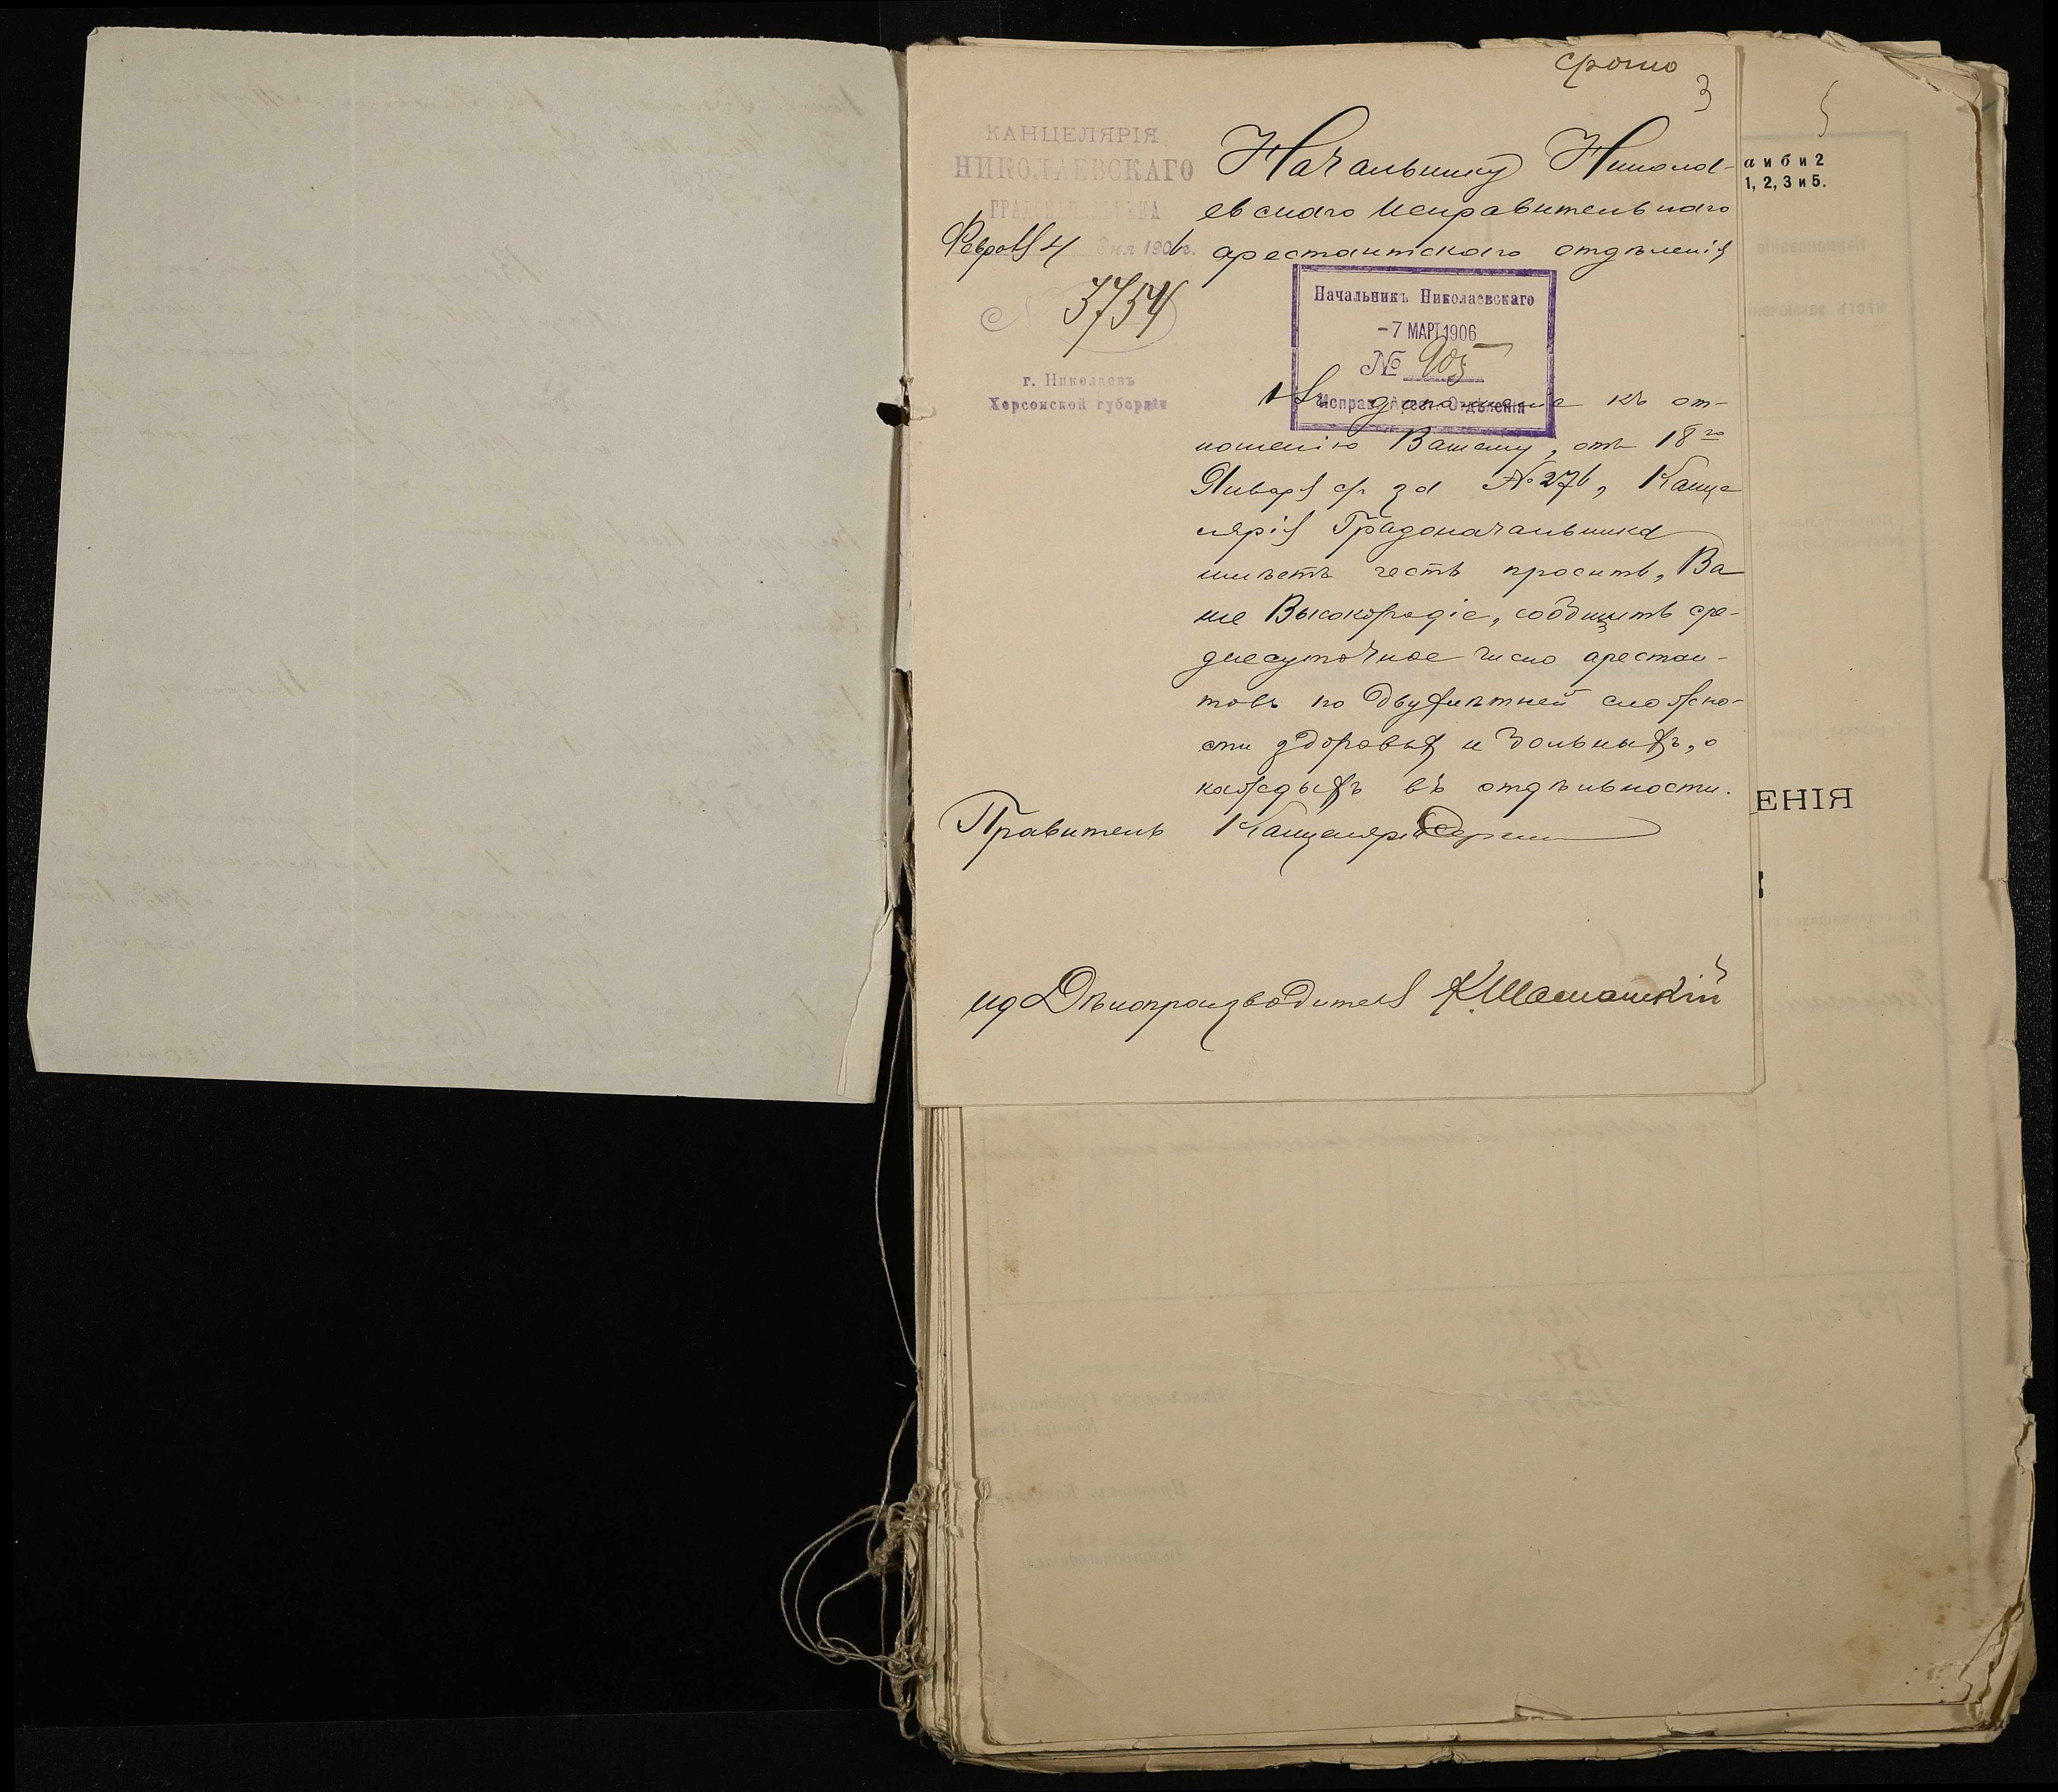 срочно
3
КАНЦЕЛЯРІЯ
НИКОЛАЕВСКАГО
ГРАДОНАЧАЛЬНИКА
Февраля 4 дня 1906 г.
№ 3754
г. Николаевъ
Херсонской губерніи
Начальнику Никола-
евскаго Исправительнаго
арестантскаго отдѣленія
Начальникъ Николаевскаго
-7 МАРТ 1906
№ 905
Исправ. Арест. Отдѣленія
Въ дополненіе къ от-
ношенію Вашему, отъ 18го
Января с/г за № 276, Канце
лярія Градоначальника
имѣетъ честь просить, Ва
ше Высокородіе, сообщить сре-
днесуточное число арестан-
товъ по двухлѣтней сложно-
сти здоровыхъ и больныхъ, о
каждыхъ въ отдѣльности.
Правитель Канцеляріи
ид Дѣлопроизводителя К. Шамашкій
5
а и б и 2
1, 2, 3 и 5.
ЕНІЯ